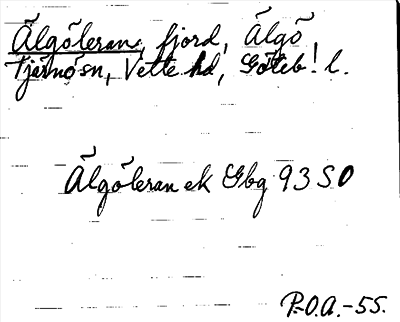 Älgöleran, fjord, Älgö
Tjärnösn, Vette hd, Göteb! l.
Älgöleran ek Gbg 93 SO
P.O.A.-55.